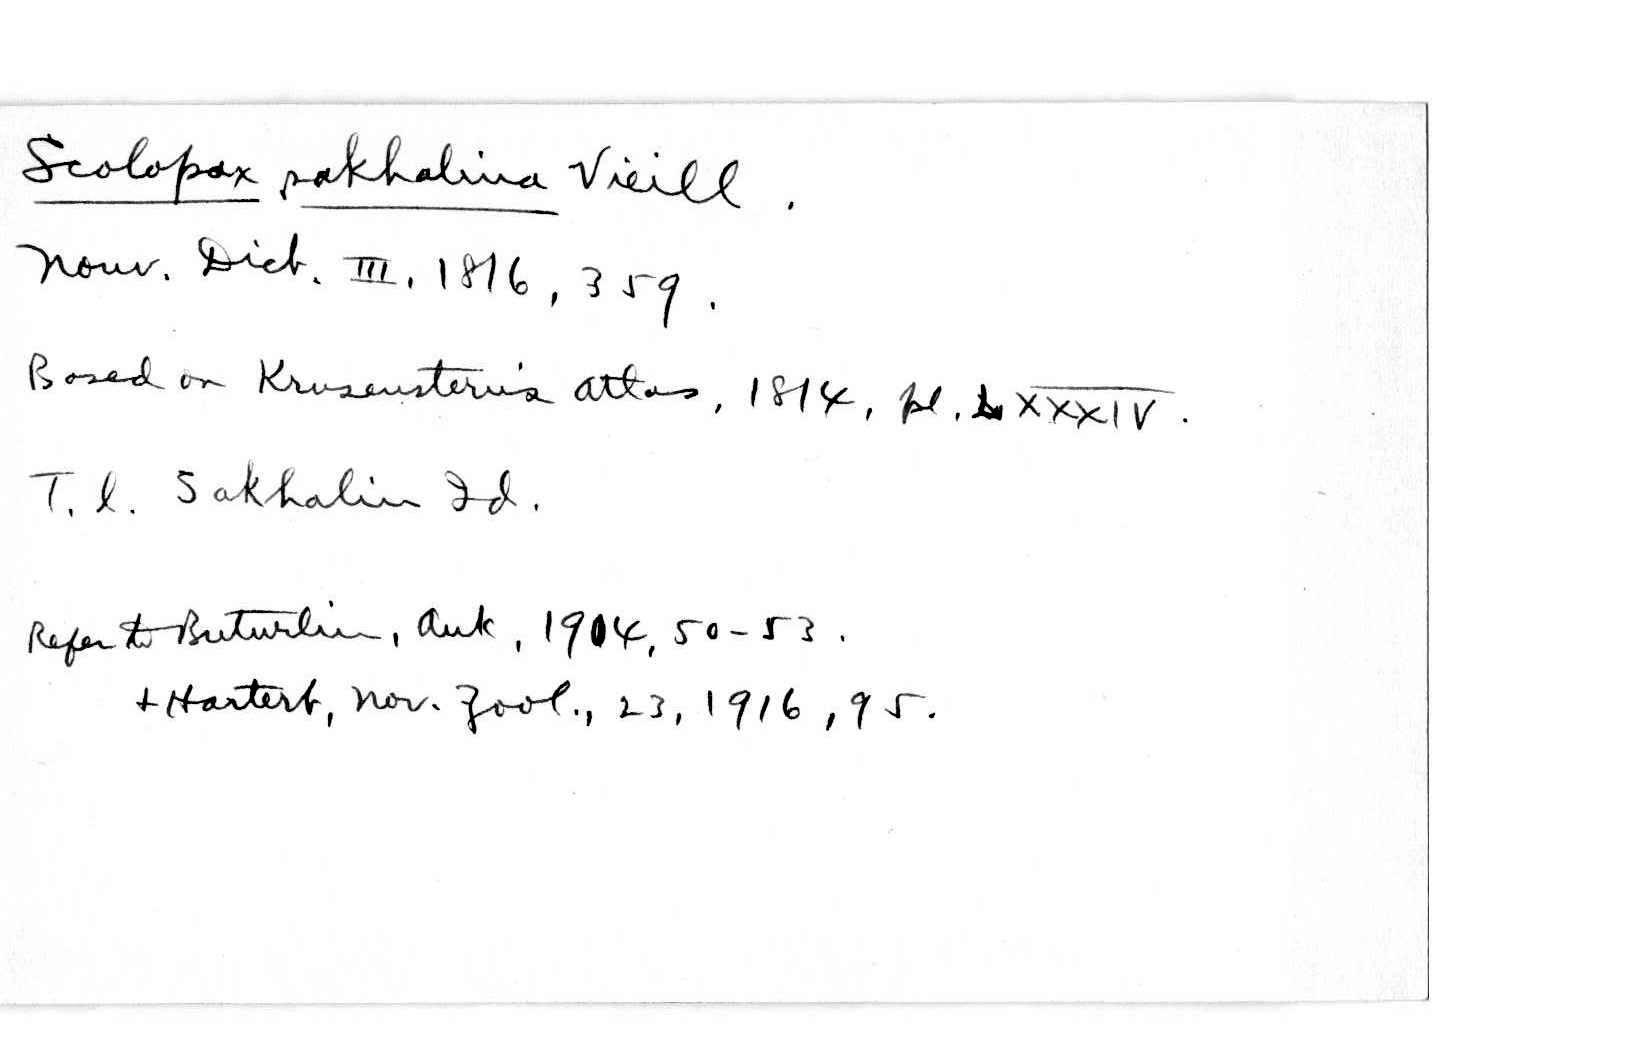 Scolopax sakhalina Vieill.
Nouv. Dict. III, 1816, 359.
Based on Krusenstern's Atlas, 1814, pl. LXXXIV.
T. l. Sakhalin Id.
Refer to Buturlin, Auk, 1904, 50-53.
+ Hartert, Nov. Zool., 23, 1916, 95.